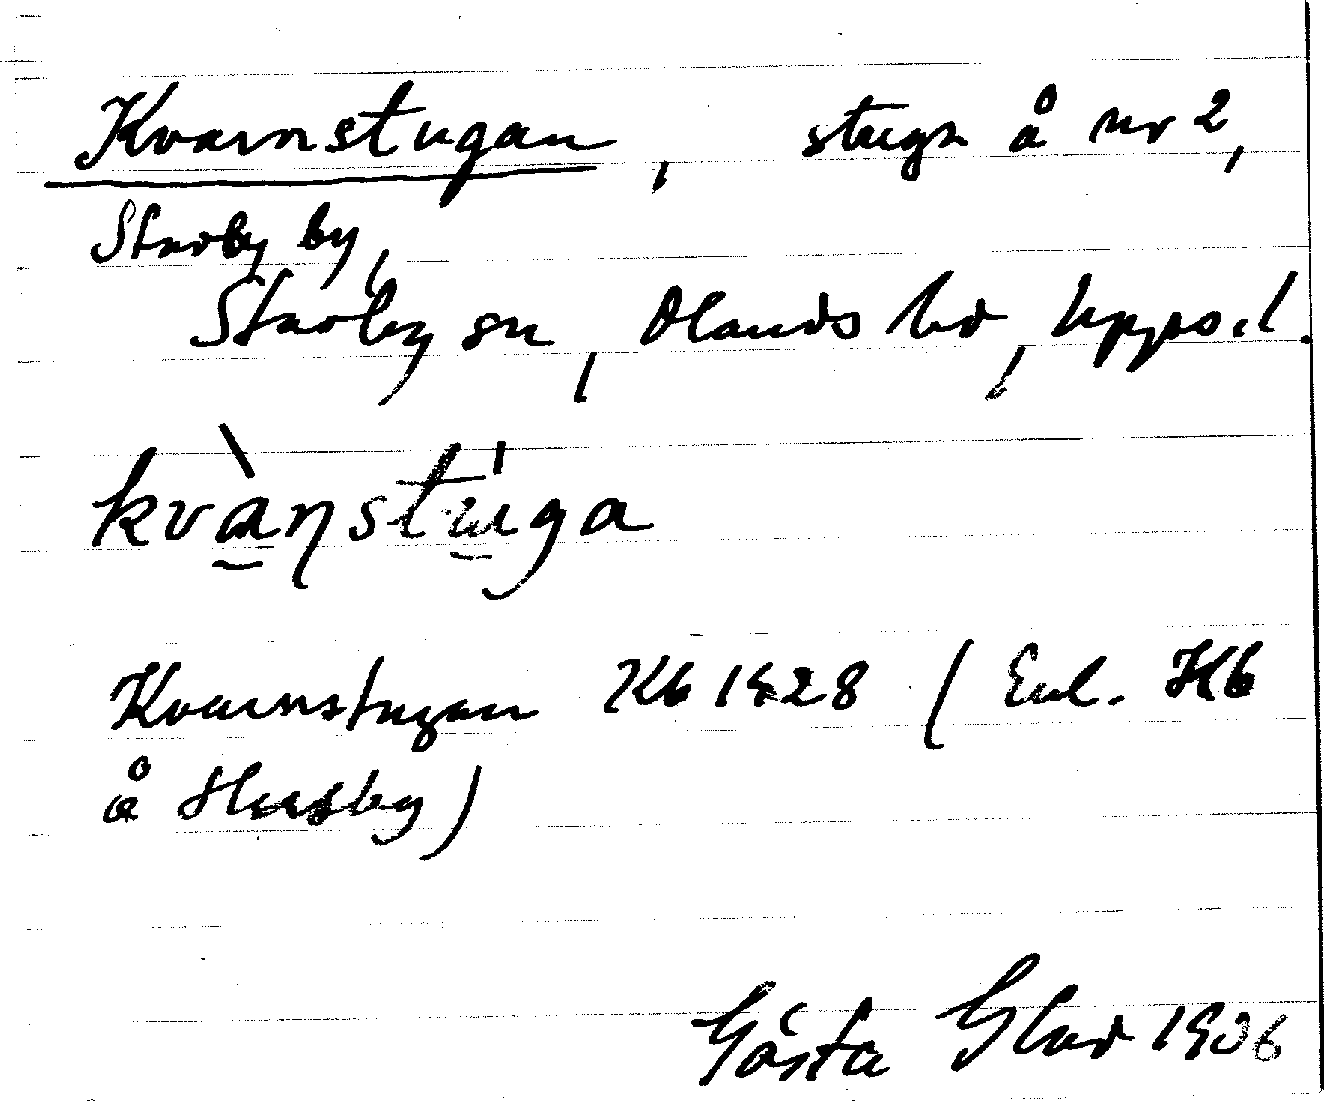 Kvarnstugan, stuga å nr 2,
Stavby by,
Stavby sn, Olands hd, Upps. l.
kvànstúga
Kvarnstugan Kb 1828 (Enl. Hb
å Husby)
Gösta Glad 1936